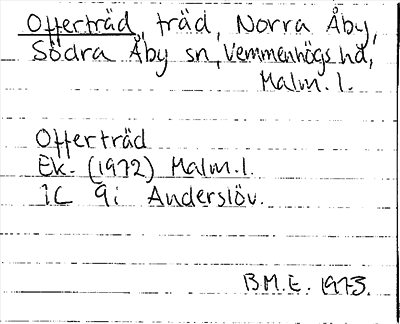 Offerträd, träd, Norra Åby,
Södra Åby sn, Vemmenhögs hd,
Malm. l.
Offerträd
Ek. (1972) Malm. l.
1C 9i Anderslöv.
B.M.E. 1973.